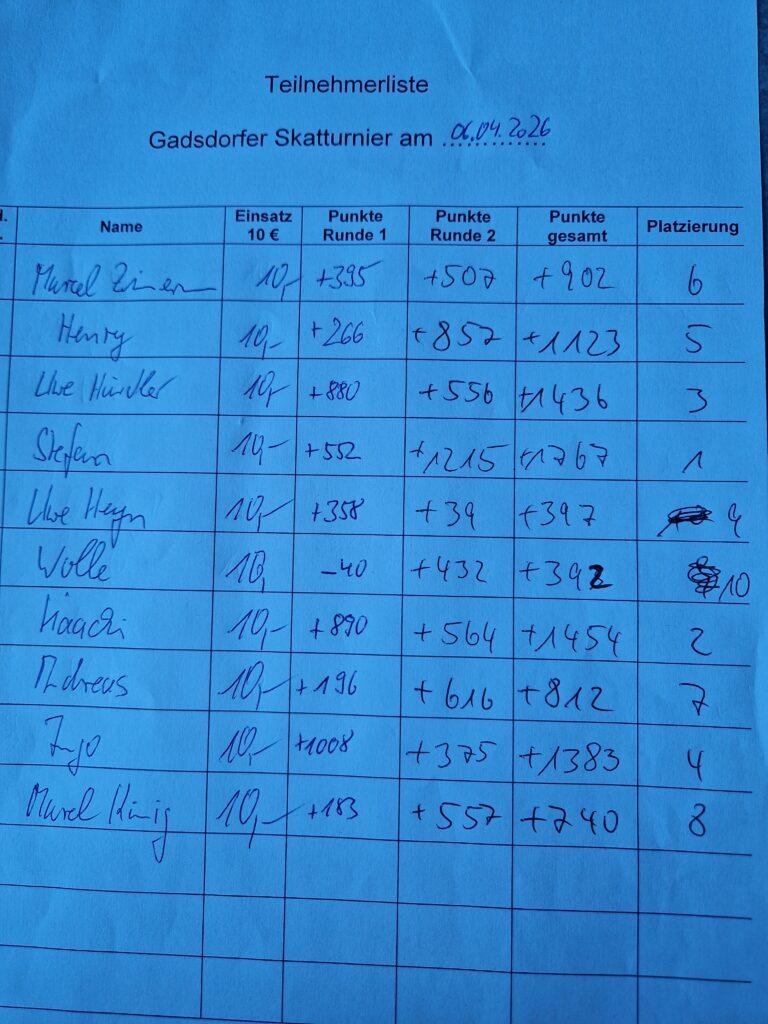 Teilnehmerliste
Gadsdorfer Skatturnier am 06.04.2026
Name Einsatz 10 € Punkte Runde 1 Punkte Runde 2 Punkte gesamt Platzierung
Marcel 10,- +395 +507 +902 6
Henry 10,- +266 +857 +1123 5
Uwe 10,- +880 +556 +1436 3
Stefan 10,- +552 +1215 +1767 1
Uwe Heyn 10,- +358 +39 +397 9
Wolle 10, -40 +432 +392 10
10,- +890 +564 +1454 2
Andreas 10,- +196 +616 +812 7
Ingo 10,- +1008 +375 +1383 4
Marcel König 10,- +183 +557 +740 8